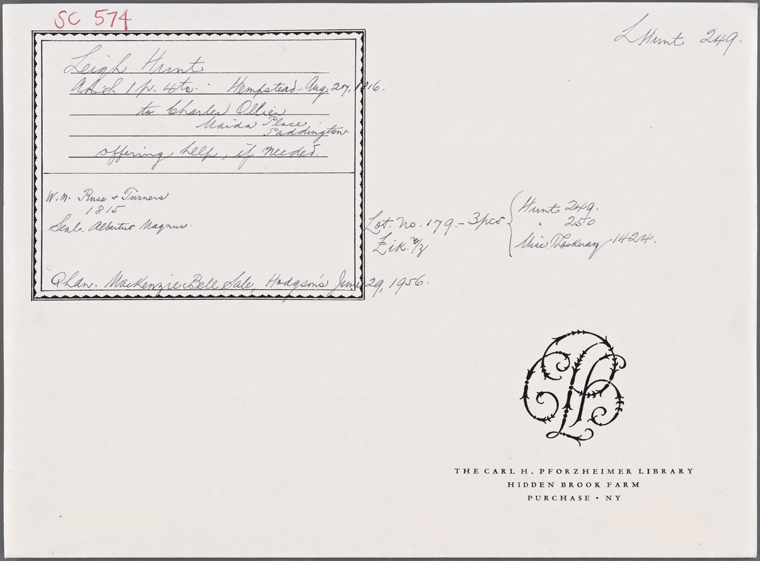 SC 574
L Hunt 249.
Leigh Hunt
A.L.S. 1 p. 4to. Hempstead- Aug 27, 1816.
to Charles Ollier
Maida Place
Paddington
offering help, if needed.
W.M. Ruse & Turners
1815
Seal. Albertus Magnus.
Lot. No. 179.- 3pcs
Hunt 249.
" 250
Misc. Thackeray 1424.
Zik.
MacKenzie Bell Sale, Hodgson's June 29, 1956.
THE CARL H. PFORZHEIMER LIBRARY
HIDDEN BROOK FARM
PURCHASE • NY